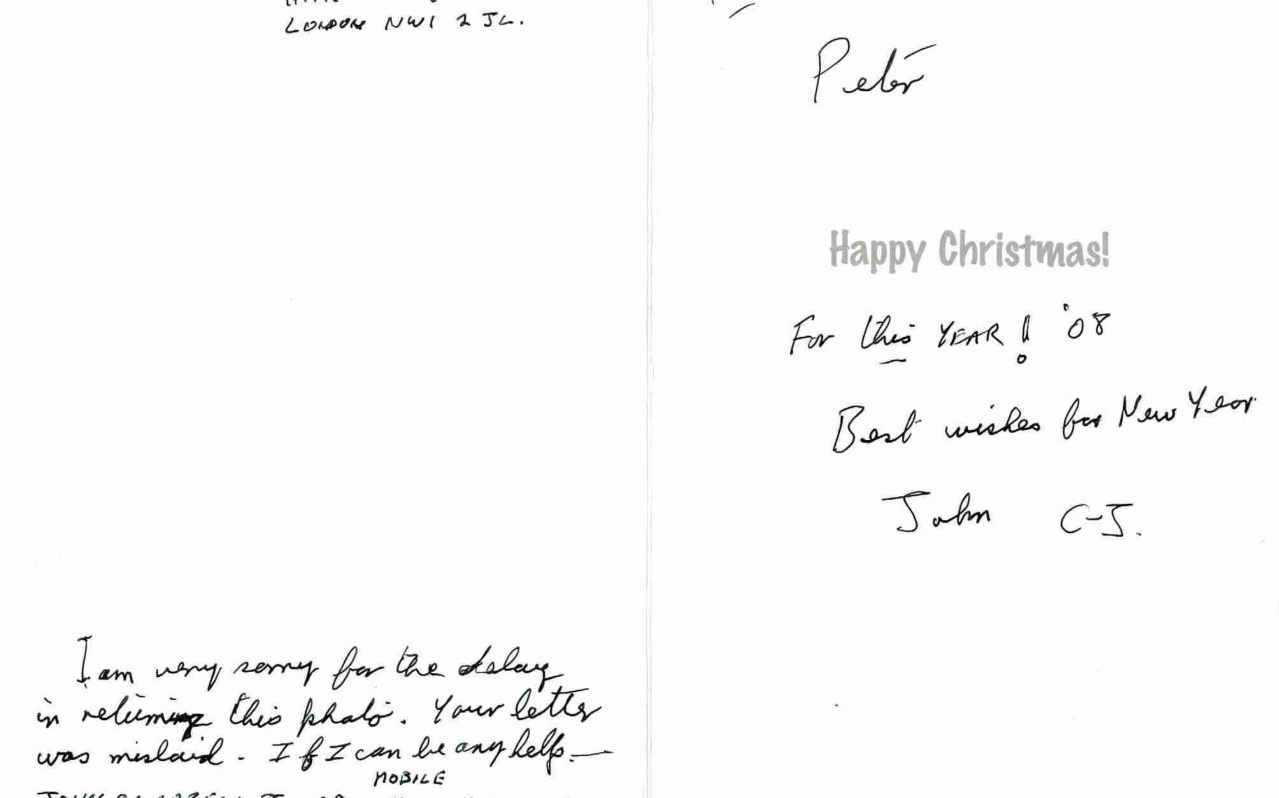 LONDON NW1 2JL.
I am very sorry for the delay
in returning this photo. Your letter
was mislaid. If I can be any help —
MOBILE
Peter
Happy Christmas!
For this YEAR! '08
Best wishes for New Year
John C-J.